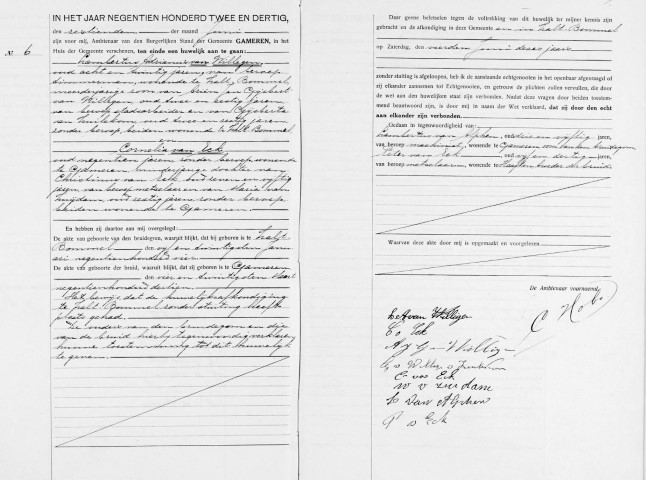 IN HET JAAR NEGENTIEN HONDERD TWEE EN DERTIG,
den zestienden der maand juni
zijn voor mij, Ambtenaar van den Burgerlijken Stand der Gemeente GAMEREN, in het
Huis der Gemeente verschenen, ten einde een huwelijk aan te gaan:
No 6
Lambertus Adrianus van Willigen
oud acht en twintig jaren, van beroep
timmerman, wonende te Zalt-Bommel,
meerderjarige zoon van Arien Gijsbert
van Willigen oud twee en zestig jaren
van beroep en van Gijsberta
van oud twee en zestig jaren
zonder beroep, beiden wonende te Zalt-Bommel
en
Cornelia van Eck
oud negentien jaren zonder beroep wonende
te Gameren minderjarige dochter van
Christianus van Eck oud zeven en vijftig
jaren, van beroep metselaar en van Maria van
oud zestig jaren zonder beroep
beiden wonende te Gameren.
En hebben zij daartoe aan mij overgelegd:
De akte van geboorte van den bruidegom, waaruit blijkt, dat hij geboren is te Zalt-
Bommel den vijf en twintigsten janu-
ari negentienhonderd vier
De akte van geboorte der bruid, waaruit blijkt, dat zij geboren is te Gameren
den vier en twintigsten Maart
negentienhonderd dertien.
Het bewijs dat de huwelijksafkondiging
te Zalt-Bommel zonder stuiting heeft
plaats gehad.
De ouders van den bruidegom en die
van de bruid hierbij tegenwoordig verklaren
hunne toestemming tot dit huwelijk
te geven.
Daar geene beletselen tegen de voltrekking van dit huwelijk ter mijner kennis zijn
gebracht en de afkondiging in deze Gemeente en in Zalt-Bommel
op Zaterdag, den vierden juni dezes jaars
zonder stuiting is afgeloopen, heb ik de aanstaande echtgenooten in het openbaar afgevraagd of
zij elkander aannemen tot Echtgenooten, en getrouw de plichten zullen vervullen, die door
de wet aan den huwelijken staat zijn verbonden. Nadat deze vragen door beiden toestem-
mend beantwoord zijn, is door mij in naam der Wet verklaard, dat zij door den echt
aan elkander zijn verbonden.
Gedaan in tegenwoordigheid van
Lambertus van Alphen, oud drie en vijftig jaren,
van beroep machinist, wonende te Gameren oom van den bruidegom
Peter van Eck, oud vijf en dertig jaren,
van beroep metselaar, wonende te Zuilichem broeder der bruid
Waarvan deze akte door mij is opgemaakt en voorgelezen
De Ambtenaar voornoemd,
L A van Willigen
C v Eck
A G v Willigen
C van Eck
L van Alphen
P v Eck